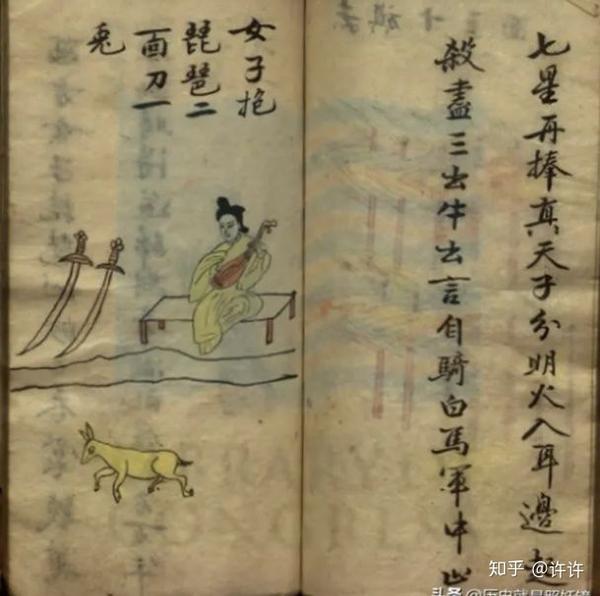 七星再捧真天子分明火入耳邊起
殺盡三出牛出言自騎白馬軍中出
女子抱
琵琶二
面刀一
兎
知乎 @许许